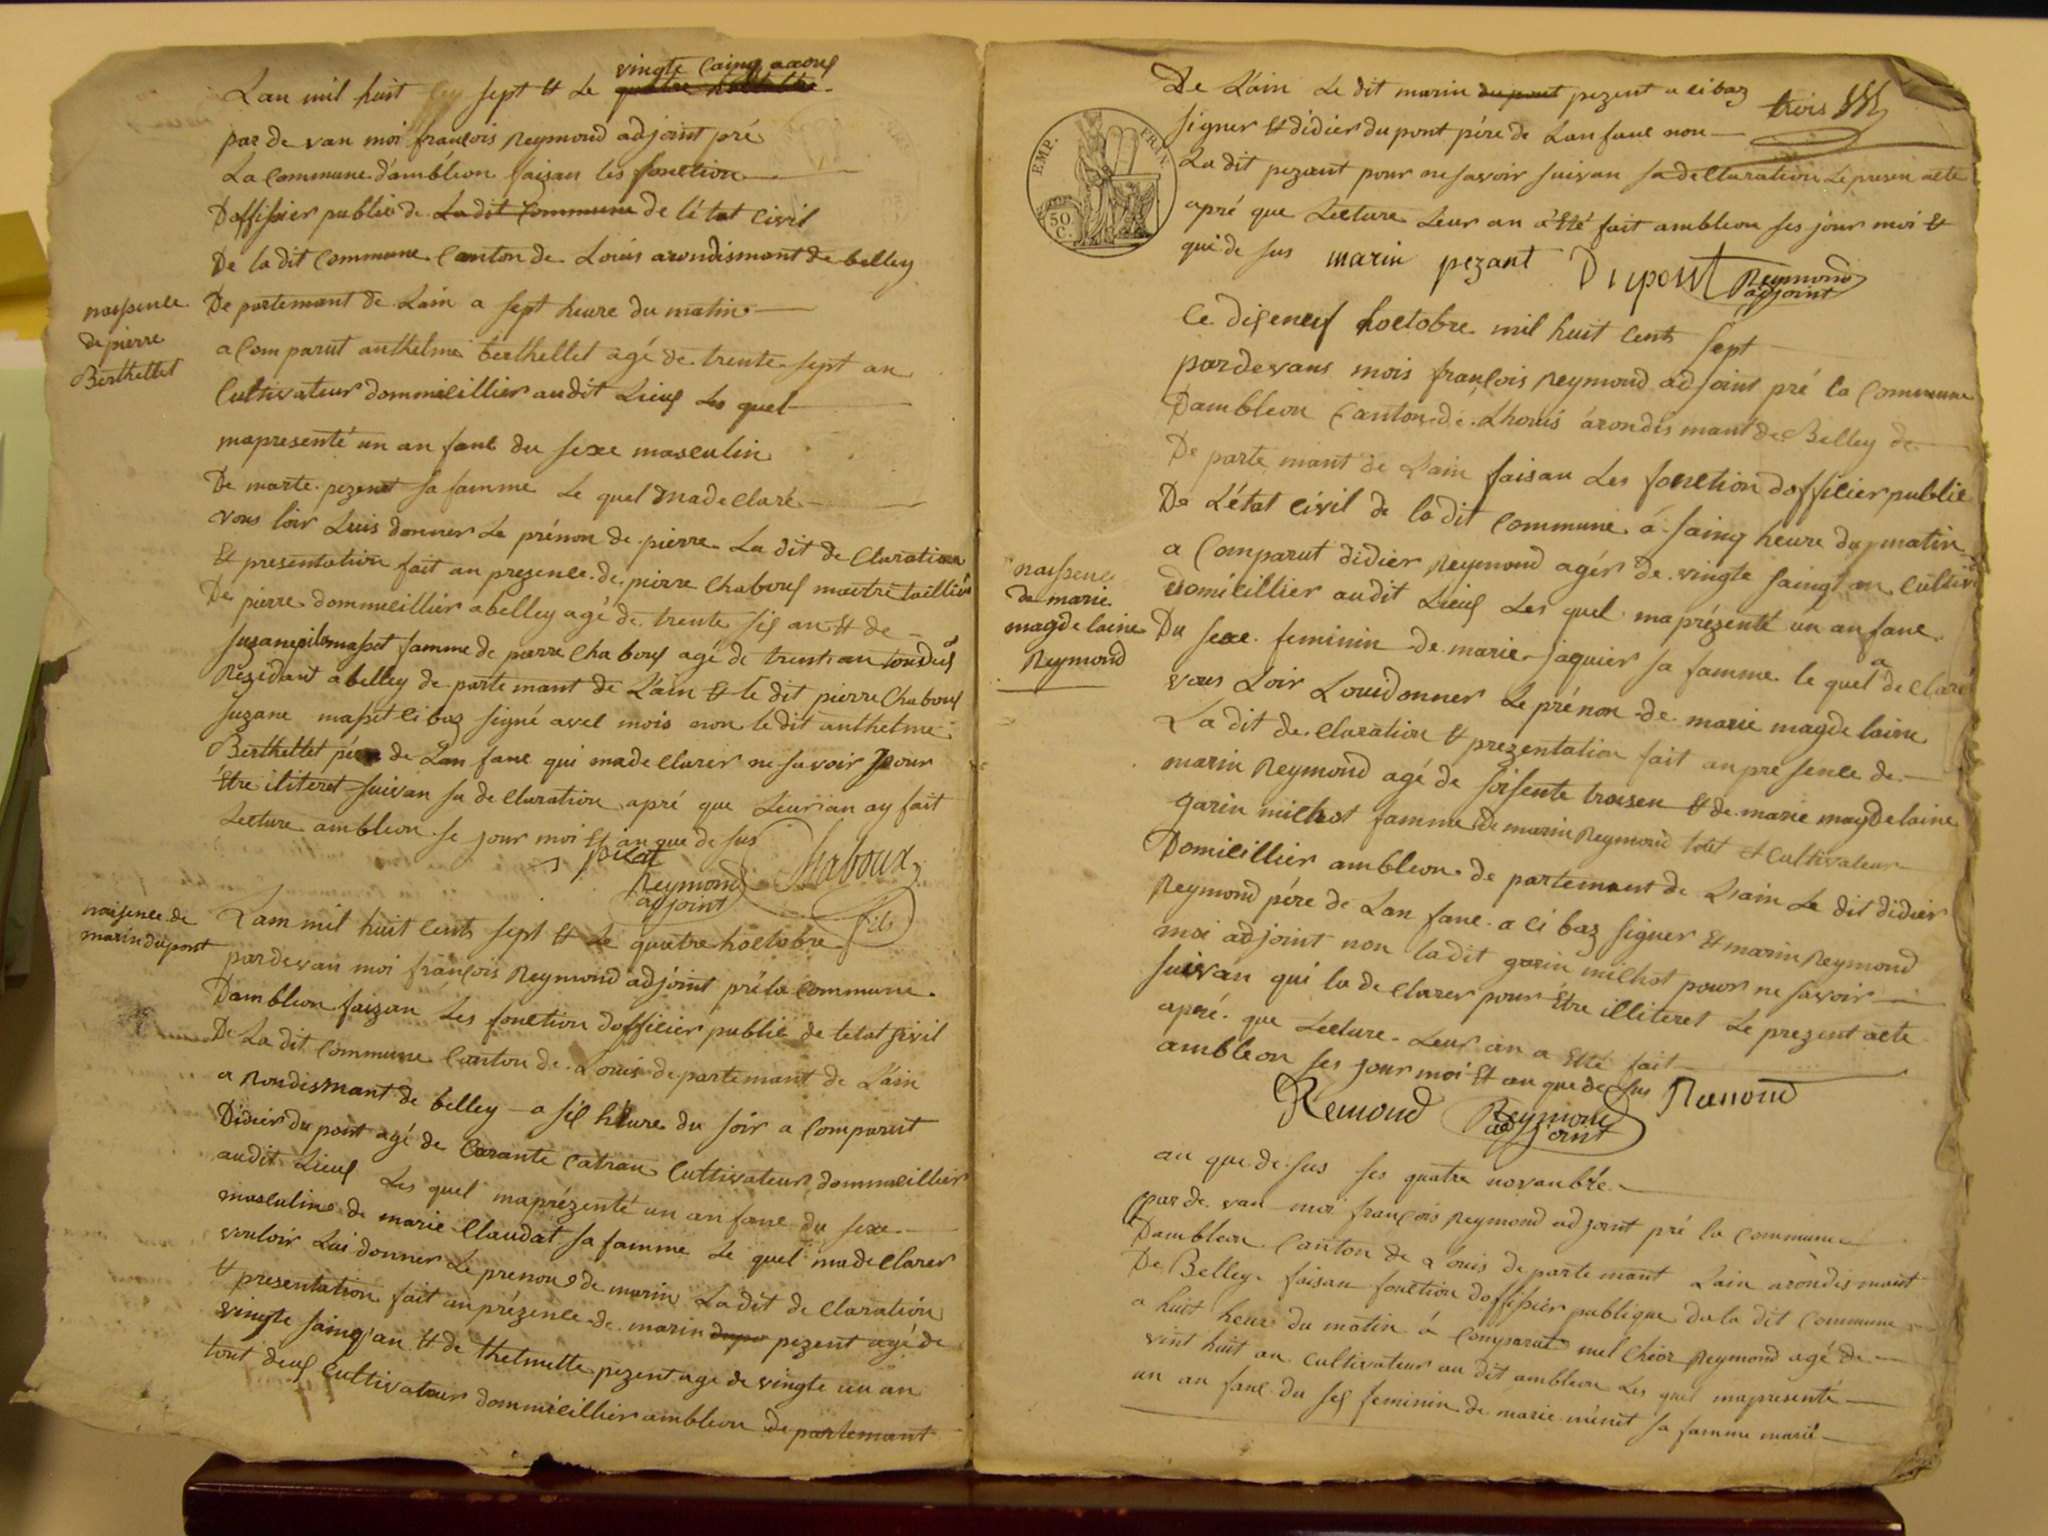 Lan mil huit sept et Le vingte Caing aaous
quatre hoctobre
par de van moi françois Reymond adjoint pré
La Commune dambléon faizan les fonction
Doffisier public de La dit Commune de létat Civil
De la dit Commune Canton de Louis arondismant de belley
De partemant de Lain a sept heure du matin
naissence
de pierre
Berthellet
a Comparut anthelme berthellet agé de trente sept an
Cultivateur dommicillier audit Lieus Les quel
mapresenté un an fanc du sexe masculin
De marte pezent sa famme Le quel madeclaré
vous loir Luis donner Le prénon de pierre La dit de Claration
Et presentation fait an presence de pierre Chabous maitre taillié
De pierre dommicillier abelley agé de trente sis an Et de
masset famme de pierre Chabous agé de trent an tous deus
Rezidant abelley de partemant de Lain Et le dit pierre Chabous
suzane masset ci baz signé avec mois non le dit anthelme
Berthellet pére de Lan fanc qui madeclarer ne savoir pour
Etre iliteret suivan sa declaration apré que Leur an ay fait
Lecture ambleon se jour moi Et an que de sus
Reymond
adjoint
Chaboux
fils
naisence de
marin dupont
Lam mil huit Cents sept Et Le quatre hoctobre
pardevan moi françois Reymond adjoint pré la Commune
Dambleon faizan Les fonction dofficier public de letat sivil
De La dit Commune Canton de Louis departemant de Lain
a Rondismant de belley a sis heure du soir a Comparut
Didier dupont agé de Carante Catran Cultivateur dommicillier
audit Lieus Les quel maprézenté un an fanc du sexe
masculin de marie Claudat sa famme Le quel madeclarer
vouloir Lui donner Le prenon de marin La dit de Claration
Et presentation fait an prézence de marin dupo pezent agé de
vingte saing an Et de thelmette pezent age de vingte un an
tout deus Cultivateur dommicillier ambleon De partemant
De Lain Le dit marin dupont pezent a ci baz
trois
signer Et didier dupont pére de Lan fanc non
La dit pezant pour ne savoir suivan sa declaration Le presen acte
apré que Lecture Leur an a été fait ambleon ses jour moi Et
qui de sus marin pezant Dupont Reymond
adjoint
EMP. FRAN.
50
C.
Ce diseneuf hoctobre mil huit Cents sept
pardevans mois françois Reymond adjoint pré la Commune
Dambleon Canton de Lhouis arondismant de Belley de
De partemant de Lain faisan Les fonction dofficier public
De Létat Civil de la dit Commune á saing heure du matin
naissence
de marie
magdelaine
Reymond
a Comparut didier Reymond agér de vingte saingt an Cultiv
domicillier audit Lieus Les quel maprézenté un an fanc
Du sexe feminin de marie jaquier sa famme le quel a declaré
vous Loir Louidonner Le prénon de marie magdelaine
La dit declaration Et prezentation fait an presence de
marin Reymond agé de soisente troisen Et de marie magdelaine
garin milhot famme de marin Reymond tout Et Cultivateur
Domicillier ambleon de partemant de Lain Le dit didier
Reymond pére de Lan fanc a ci baz signer Et marin Reymond
moi adjoint non ladit garin milhot pour ne savoir
suivan qui la declarer pour Etre illiteret Le prezent acte
apré que Lecture Leur an a Eté fait
ambleon ses jour moi Et an que de sus
Remond Reymond
adjoint
Remond
an que de sus ses quatre novanbre
par de van moi françois Reymond adjoint pré la Commune
Dambleon Canton de Louis departemant Lain arondismant
De Belley faisan fonction doffisier publique dela dit Commune
a huit heur du matin á Comparut melchior Reymond agé de
vint huit an Cultivateur au dit ambleon Les quel mapresenté
un an fanc du ses feminin de marie menet sa famme marie